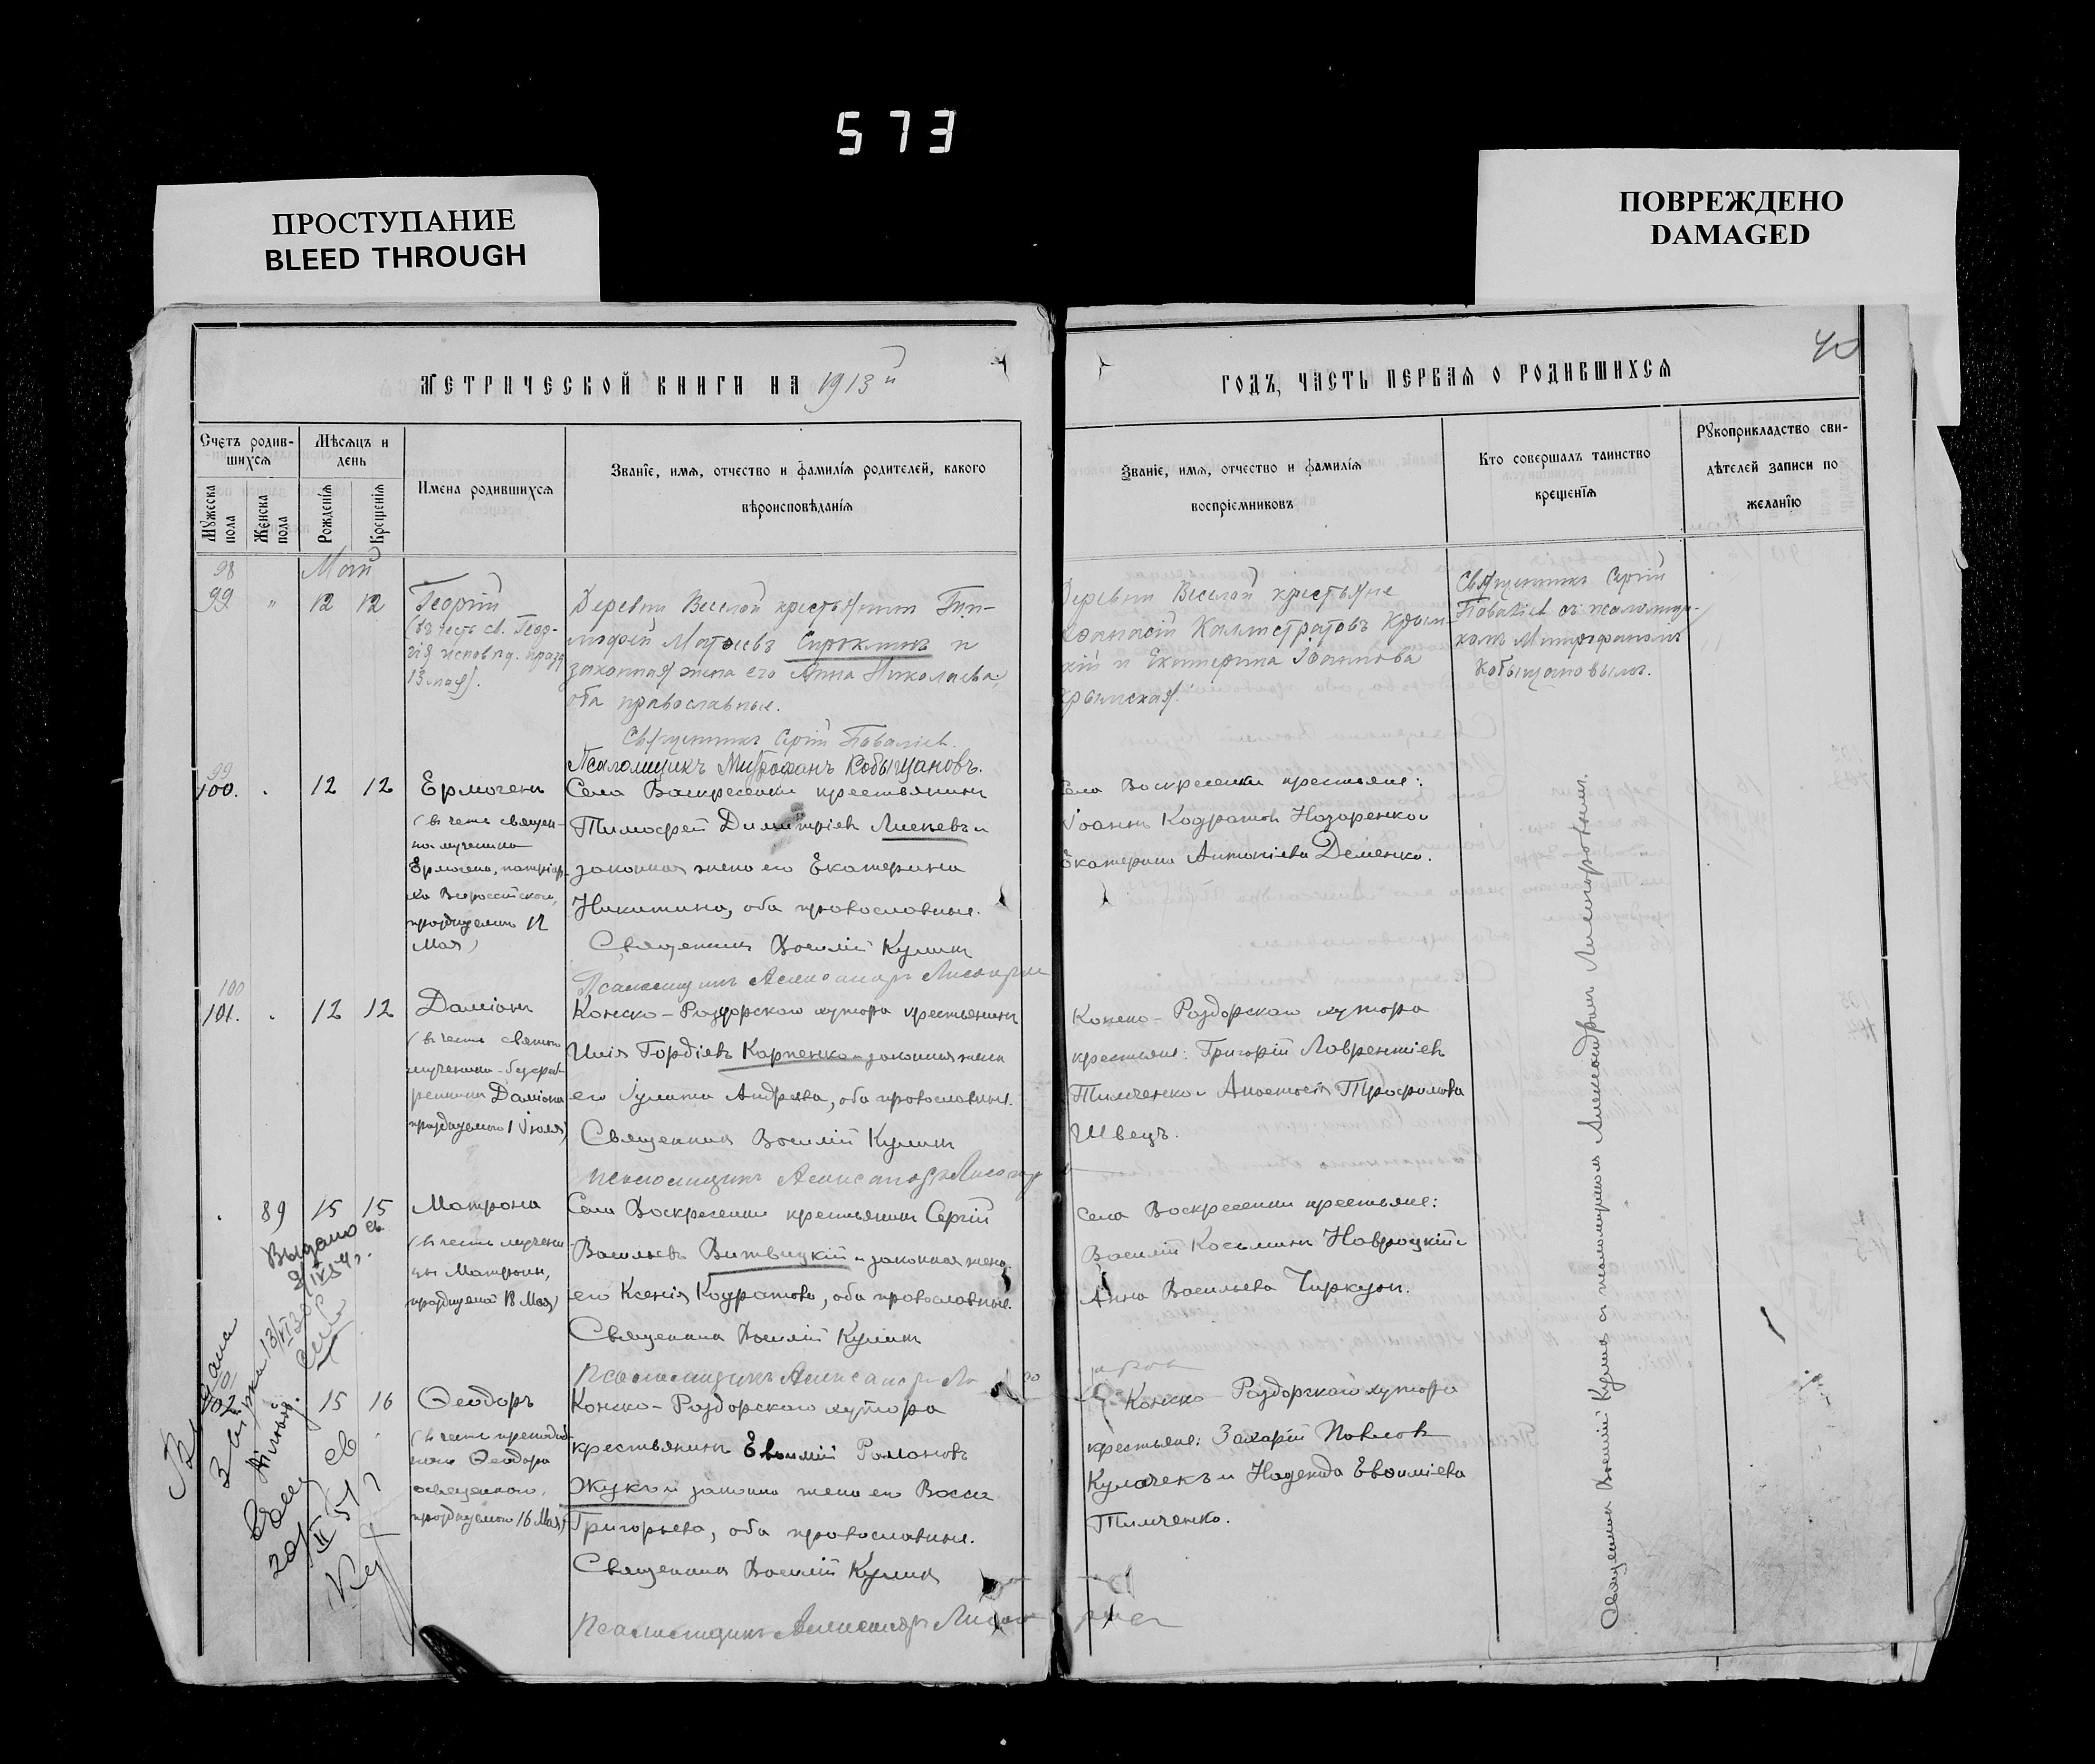 573
ПРОСТУПАНИЕ
BLEED THROUGH
ПОВРЕЖДЕНО
DAMAGED
40
МЕТРИЧЕСКОЙ КНИГИ НА 1913й
ГОДЪ, ЧАСТЬ ПЕРВАЯ О РОДИВШИХСЯ
Счетъ родив-
шихся
Мѣсяцъ и
день
Имена родившихся
Званіе, имя, отчество и фамилія родителей, какого
вѣроисповѣданія
Мужеска пола
Женска пола
Рожденія
Крещенія
Званіе, имя, отчество и фамилія
воспріемниковъ
Кто совершалъ таинство
крещенія
Рукоприкладство сви-
дѣтелей записи по
желанію
Май
98
99 " 12 12
Георгій
(въ честь св. Геор-
гія исповѣд. празд.
13 мая).
Деревни Веселой крестьянинъ Тим-
офей Матѳеевъ Сироклинъ и
законная жена его Анна Николаева,
оба православные.
Священникъ Сергій
Псаломщикъ Митрофанъ Кобыщановъ.
Деревни Веселой крестьяне
Каллистратовъ Крым-
скій и Екатерина Іоаннова
Крымская.
Священникъ Сергій
съ псаломщи-
комъ Митрофаномъ
Кобыщановымъ.
99
100. 12 12
Ермогенъ
(въ честь священ-
номученика
Ермогена, патріар-
ха Всероссійскаго,
празднуемаго 12
Мая)
Села Воскресенки крестьянинъ
Тимофей Димитріевъ Лиеневъ и
законная жена его Екатерина
Никитина, оба православные.
Священникъ Василій Куликъ
Псаломщикъ Александръ
Села Воскресенки крестьяне:
Іоаннъ Кодратовъ Назаренко и
Екатерина Антоніева Деменко.
100
101. 12 12
Даміанъ
(въ честь святого
мученика-безсреб-
реника Даміана
празднуемаго 1 Іюля)
Конско-Раздорскаго хутора крестьянинъ
Илія Гордіевъ Карпенко и законная жена
его Іулита Андреева, оба православные.
Священникъ Василій Куликъ
псаломщикъ Александръ
Конско-Раздорскаго хутора
крестьяне: Григорій Лаврентіевъ
Тимченко и Анастасія Трофимова
Швецъ.
89 15 15
Матрона
(въ честь мучени-
цы Матроны,
празднуемой 18 Мая)
Села Воскресенки крестьянинъ Сергій
Васильевъ Витвицкій и законная жена
его Ксенія Кодратова, оба православные.
Священникъ Василій Куликъ
псаломщикъ Александръ
Села Воскресенки крестьяне:
Василій Косьминъ Навроцкій и
Анна Васильева Чиркунъ.
101
102. 15 16
Ѳеодоръ
(въ честь преподоб-
наго Ѳеодора
освященнаго,
празднуемаго 16 Мая)
Конско-Раздорскаго хутора
крестьянинъ Евѳимій Романовъ
Жукъ и законная жена его Васса
Григорьева, оба православные.
Священникъ Василій Куликъ
псаломщикъ Александръ
Конско-Раздорскаго хутора
крестьяне: Захарій Павловъ
Кулачекъ и Надежда Евѳиміева
Тимченко.
Священникъ Василій Куликъ съ псаломщикомъ Александромъ
Выдано св.